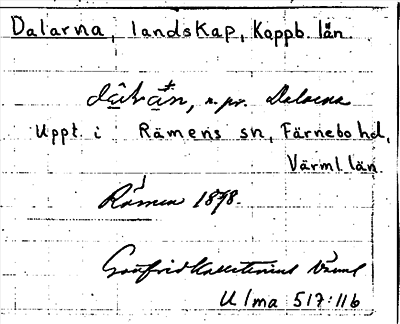 Dalarna, landskap, Koppb. län.
n. pr. Dalarna
Uppt. i Rämens sn, Färnebo hd,
Värml. län.
Rämen 1898.
Gottfrid Kallstenius Värml
Ulma 517:11b